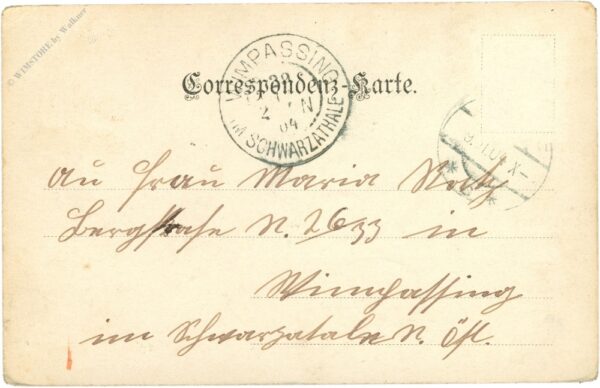 © WIMSTORE by Walkner
Correspondenz-Karte.
WIMPASSING
2 N
04
IM SCHWARZATHALE
An Frau Maria
Bergstrase N. 2633 in
Wimpassing
im Schwarzatale N. Öst.